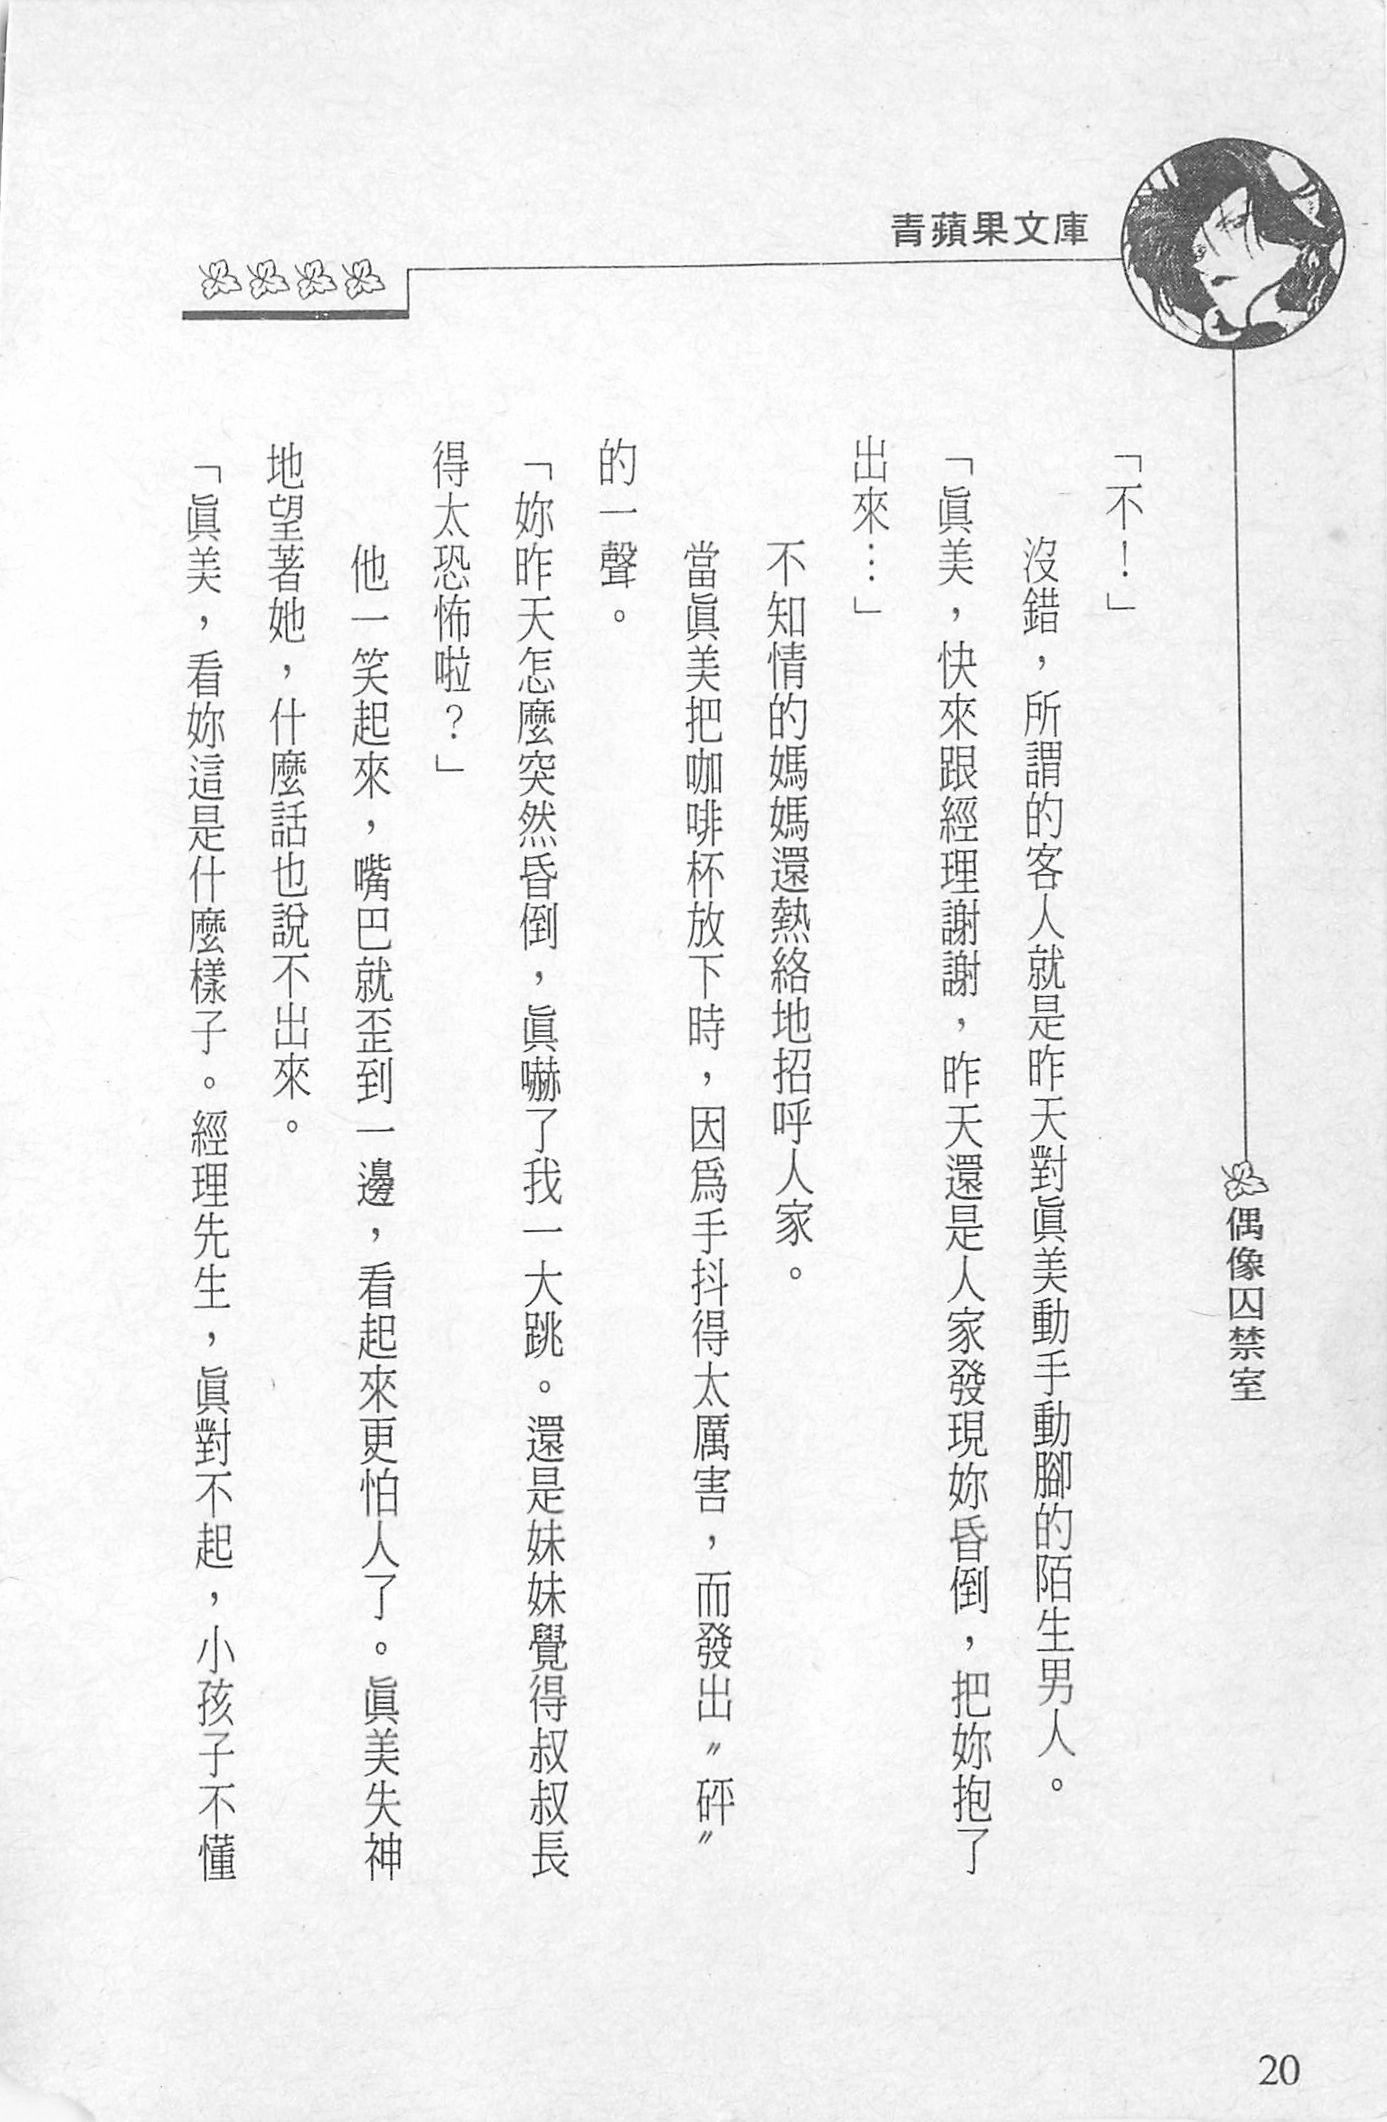 青蘋果文庫
偶像囚禁室
「不！」
沒錯，所謂的客人就是昨天對眞美動手動腳的陌生男人。
「眞美，快來跟經理謝謝，昨天還是人家發現妳昏倒，把妳抱了
出來…」
不知情的媽媽還熱絡地招呼人家。
當眞美把咖啡杯放下時，因爲手抖得太厲害，而發出〝砰〞
的一聲。
「妳昨天怎麼突然昏倒，眞嚇了我一大跳。還是妹妹覺得叔叔長
得太恐怖啦？」
他一笑起來，嘴巴就歪到一邊，看起來更怕人了。眞美失神
地望著她，什麼話也說不出來。
「眞美，看妳這是什麼樣子。經理先生，眞對不起，小孩子不懂
20